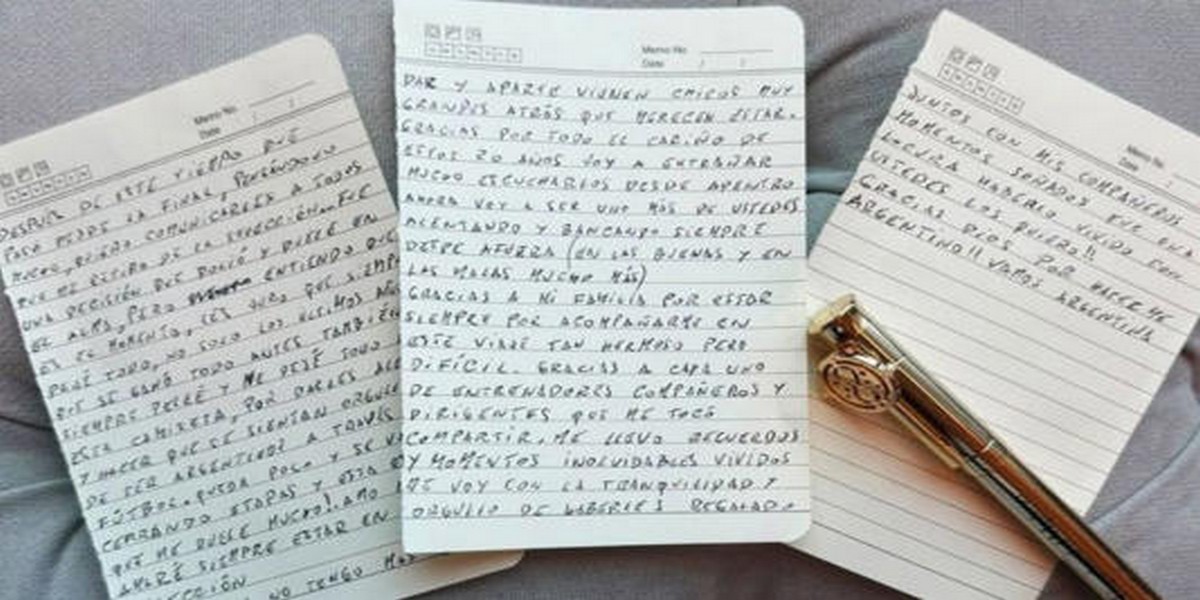 Memo No.
Date / /
DESPUES DE ESTE TIEMPO QUE
PASO DESDE LA FINAL, PENSÁNDOLO
MUCHO, QUIERO COMUNICARLES A TODOS
QUE ME RETIRO DE LA SELECCIÓN... FUE
UNA DECISIÓN QUE DOLIÓ Y DUELE EN
EL ALMA, PERO ENTIENDO QUE
ES EL MOMENTO, LES JURO QUE SIEMPRE
DEJÉ TODO, NO SOLO LOS ULTIMOS AÑOS
QUE SE GANÓ TODO ANTES TAMBIÉN
SIEMPRE PELEÉ Y ME DEJÉ TODO
ESTA CAMISETA, POR DARLES
Y HACER QUE SE SIENTAN
DE SER ARGENTINOS A TRAVÉS
FÚTBOL. QUEDA POCO Y SE
CERRANDO ETAPAS Y ESTA
QUE ME DUELE MUCHO! AMO
AMARÉ SIEMPRE ESTAR EN
NO TENGO
Memo No.
Date / /
DAR Y APARTE VIENEN CHICOS MUY
GRANDES ATRÁS QUE MERECEN ESTAR.
GRACIAS POR TODO EL CARIÑO DE
ESTOS 20 AÑOS VOY A EXTRAÑAR
MUCHO ESCUCHARLOS DESDE ADENTRO
AHORA VOY A SER UNO MÁS DE USTEDES
ALENTANDO Y BANCANDO SIEMPRE
DESDE AFUERA (EN LAS BUENAS Y EN
LAS MALAS MUCHO MÁS)
GRACIAS A MI FAMILIA POR ESTAR
SIEMPRE POR ACOMPAÑARME EN
ESTE VIAJE TAN HERMOSO PERO
DIFÍCIL. GRACIAS A CADA UNO
DE ENTRENADORES COMPAÑEROS Y
DIRIGENTES QUE ME TOCÓ
COMPARTIR, ME LLEVO RECUERDOS
Y MOMENTOS INOLVIDABLES VIVIDOS
ME VOY CON LA TRANQUILIDAD Y
ORGULLO DE HABERLES REGALADO
Memo No.
Date /
JUNTOS CON MIS COMPAÑEROS
MOMENTOS SOÑADOS FUE UNA
LOCURA HABERLO VIVIDO CON
USTEDES LOS QUIERO!!
GRACIAS DIOS POR HACERME
ARGENTINO!! VAMOS ARGENTINA